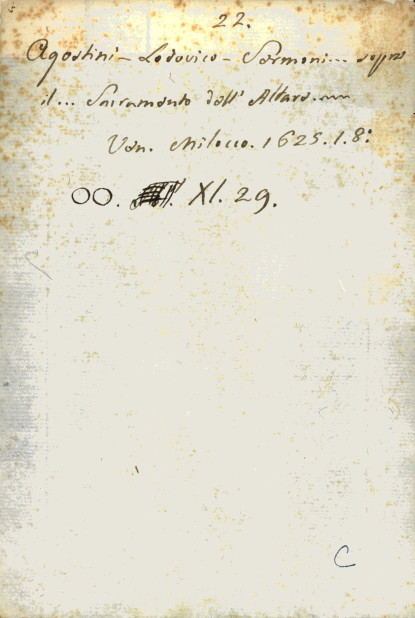 22.
Agostini - Lodovico - Sermoni... sopra
il... Sacramento dell' Altare.
Ven. Milocco. 1625. 1. 8:
OO. XI. 29.
C